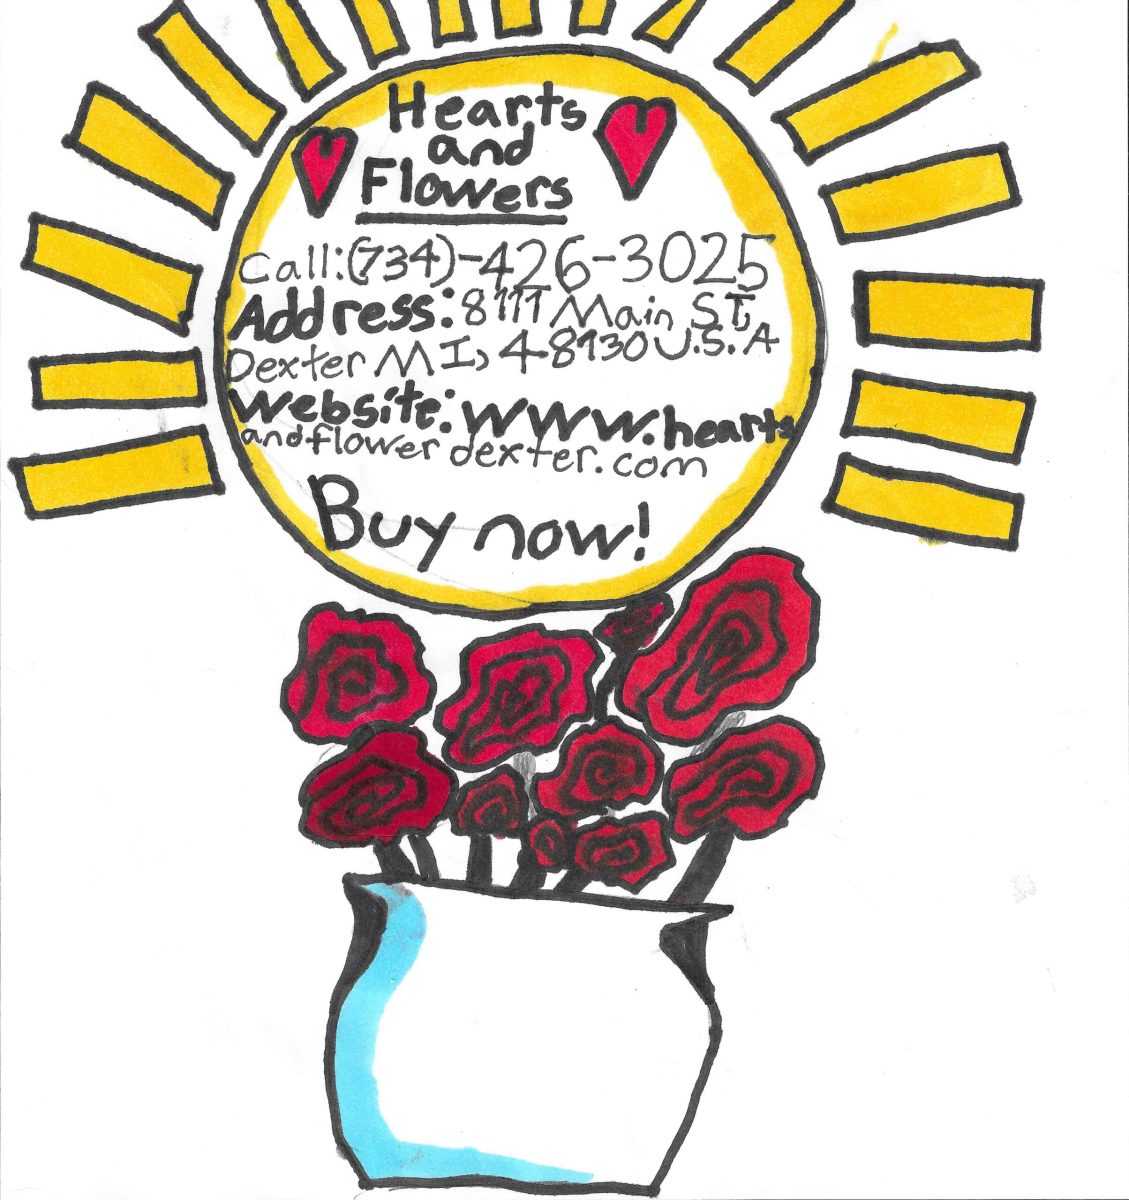 Hearts
and
Flowers
Call:(734)-426-3025
Address: 8111 Main ST,
Dexter MI, 48130 U.S.A
Website: www.hearts
andflowerdexter.com
Buy now!